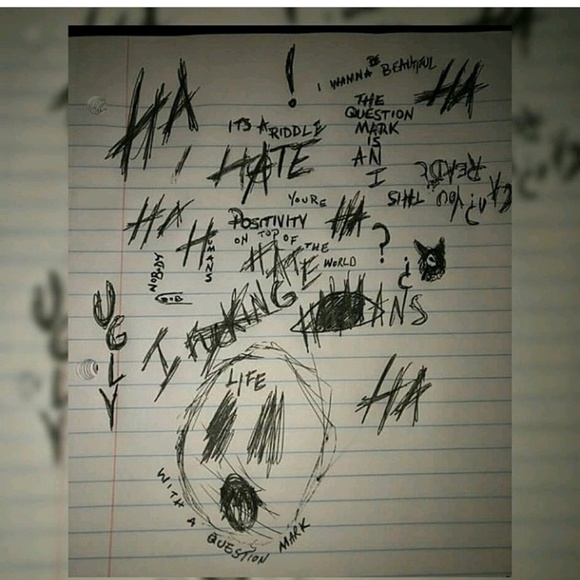 !
I WANNA BE BEAUTIFUL
HA
HA
THE
QUESTION
MARK
IS
AN
I
IT'S A RIDDLE
HATE
CAN YOU
READ
THIS
YOURE
POSITIVITY
ON TOP OF
THE
WORLD
HA
HUMANS
HA
?
¿
HATE
NOBODY
I FUCKING
HUMANS
UGLY
LIFE
HA
WITH A QUESTION MARK